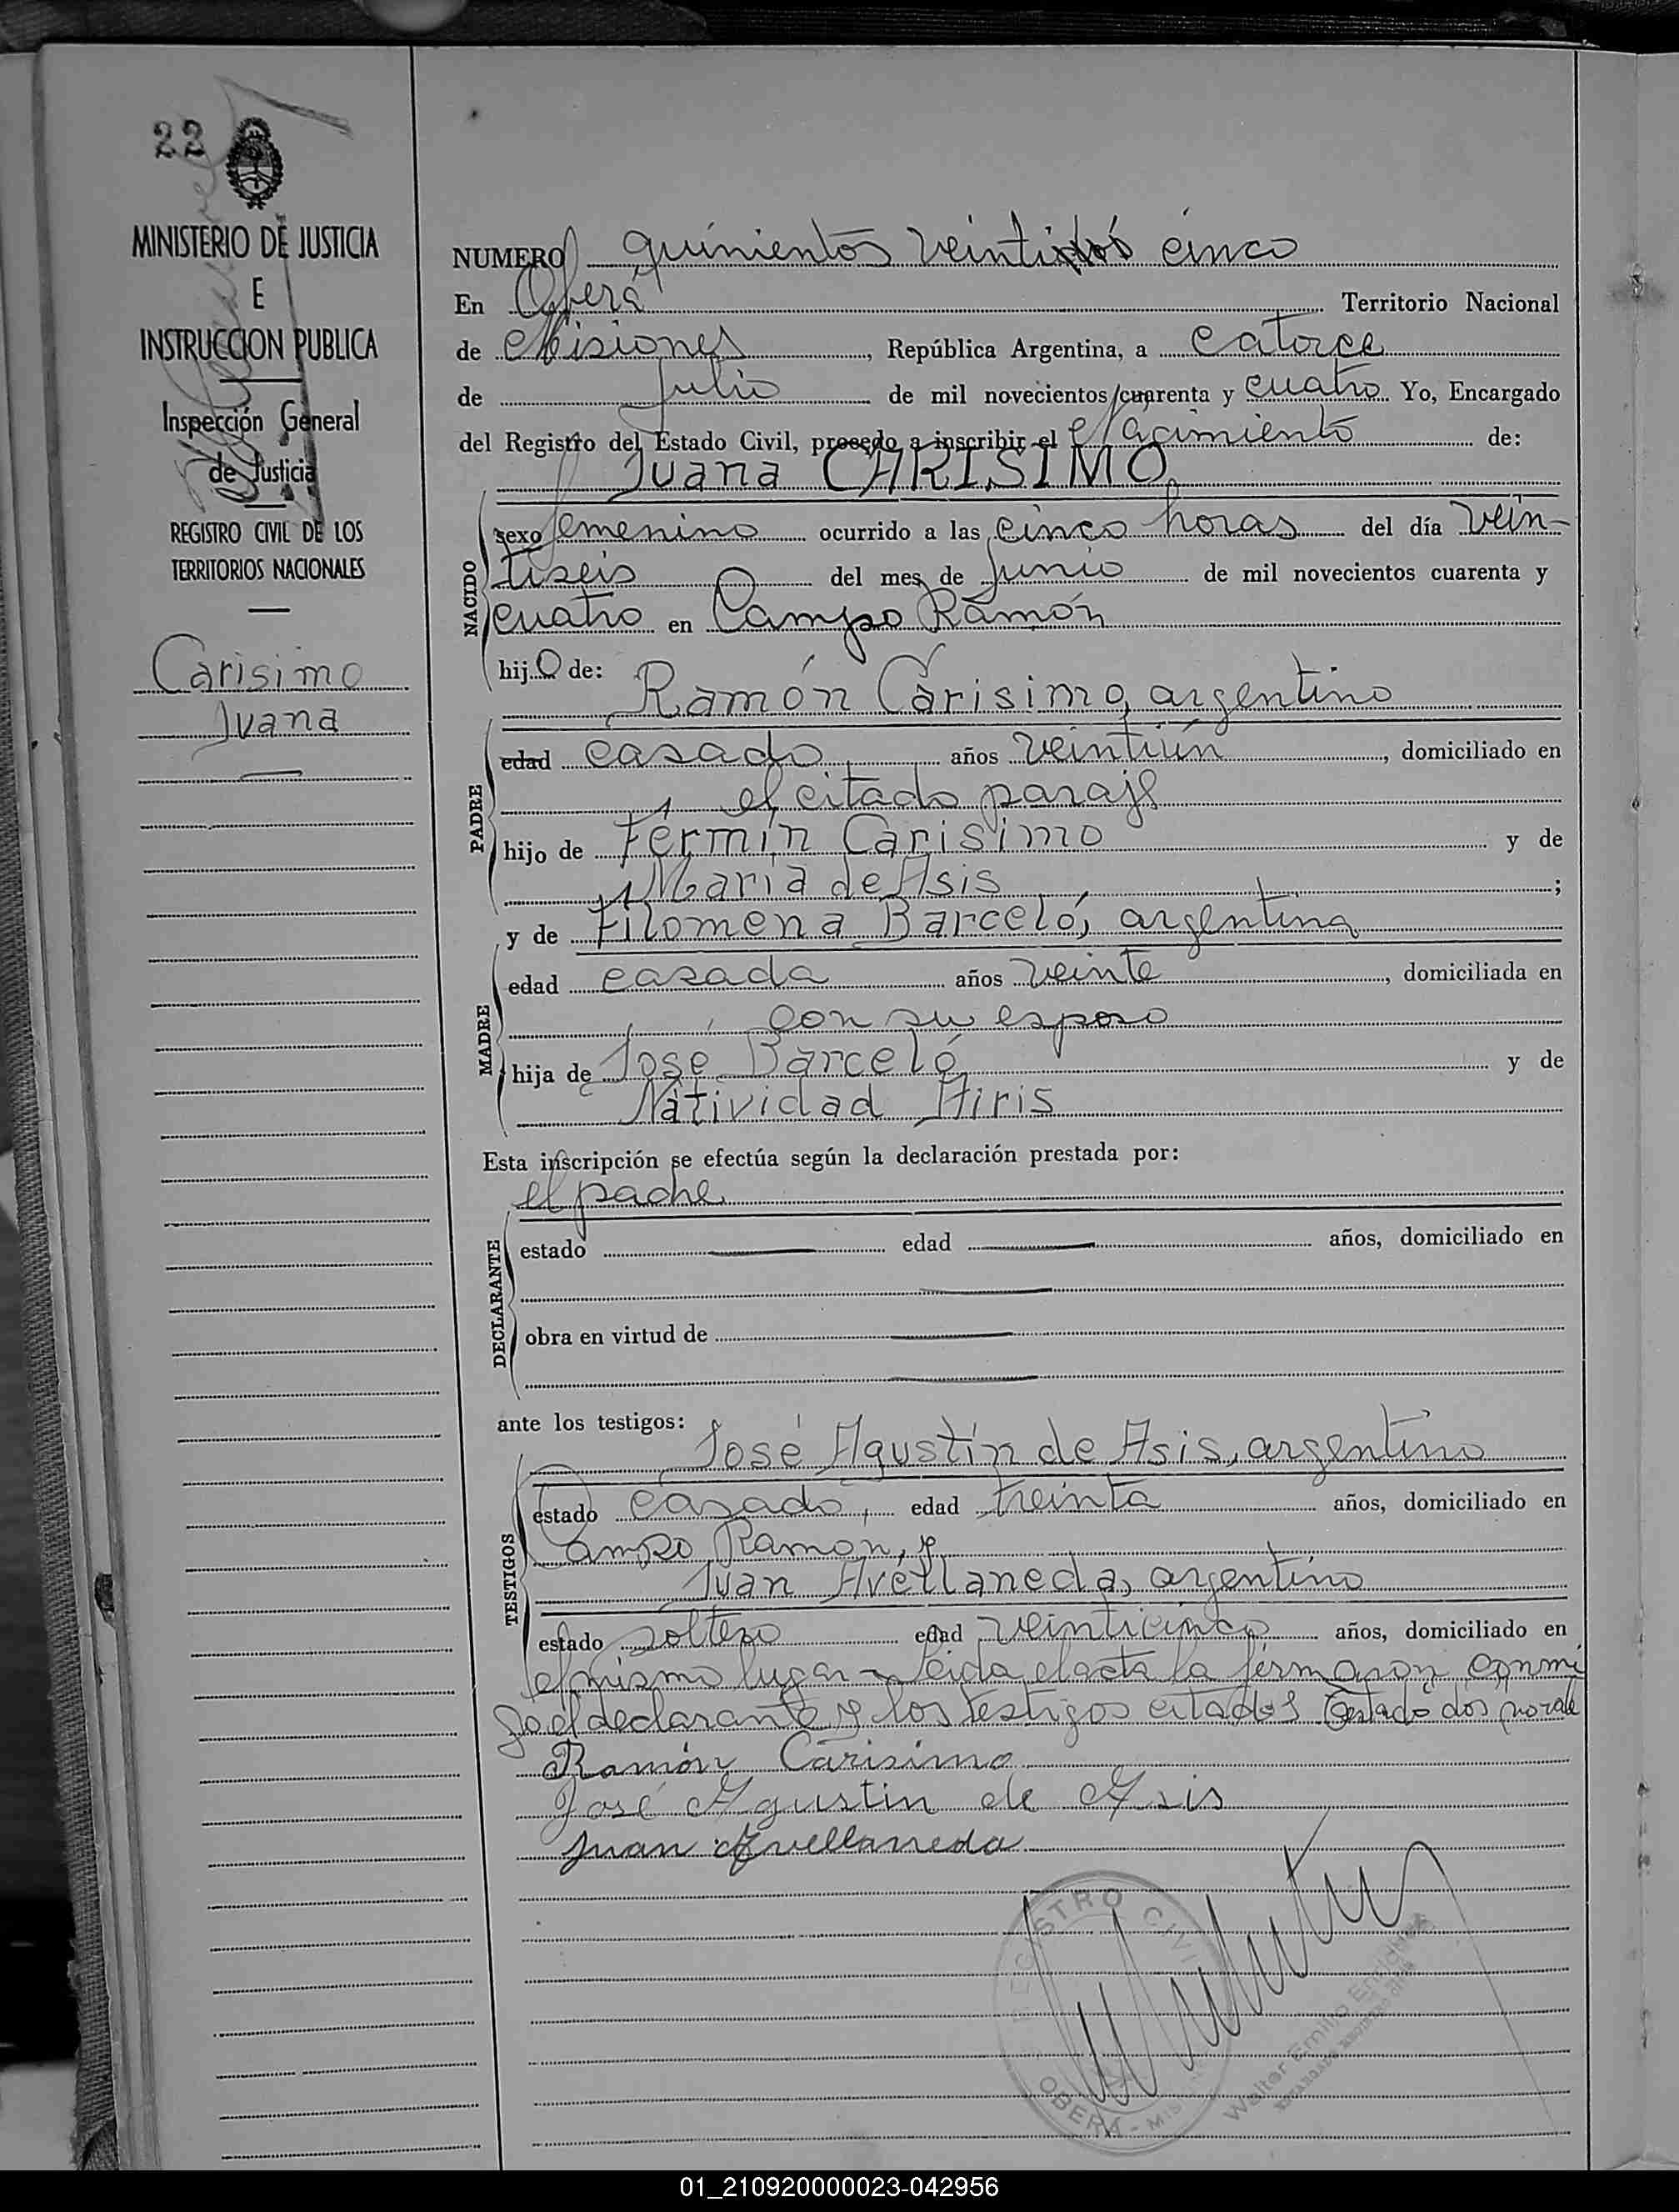 22
MINISTERIO DE JUSTICIA
E
INSTRUCCION PUBLICA
Inspección General
de Justicia
REGISTRO CIVIL DE LOS
TERRITORIOS NACIONALES
Carisimo
Juana
NUMERO quinientos veintidós cinco
En Oberá Territorio Nacional
de Misiones, República Argentina, a catorce
de Julio de mil novecientos cuarenta y cuatro Yo, Encargado
del Registro del Estado Civil, procedo a inscribir el Nacimiento de:
Juana CARISIMO
NACIDO
sexo femenino ocurrido a las cinco horas del día vein-
tiseis del mes de Junio de mil novecientos cuarenta y
cuatro en Campo Ramón
hija de:
Ramón Carisimo, argentino
PADRE
edad casado años veintiún, domiciliado en
el citado paraje
hijo de Fermín Carisimo y de
María de Asis;
y de Filomena Barceló, argentina
MADRE
edad casada años veinte, domiciliada en
con su esposo
hija de José Barceló y de
Natividad Airis
Esta inscripción se efectúa según la declaración prestada por:
el padre
DECLARANTE
estado edad años, domiciliado en
obra en virtud de
ante los testigos:
José Agustín de Asis, argentino
TESTIGOS
estado casado, edad treinta años, domiciliado en
Campo Ramon, y
Juan Avellaneda, argentino
estado soltero edad veinticinco años, domiciliado en
el mismo lugar leida el acta la firmaron conmi
go el declarante y los testigos citados Testado dos no vale
Ramón Carisimo
José Agustin de Asis
Juan Avellaneda
REGISTRO CIVIL
OBERÁ - MIS
Walter Emilio
01_210920000023-042956